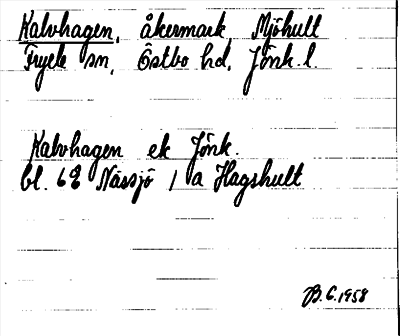 Kalvhagen, åkermark, Mjöhult
Fryele sn, Östbo hd, Jönk. l.
Kalvhagen ek Jönk.
bl. 62 Nässjö / a Hagshult
B.G. 1958